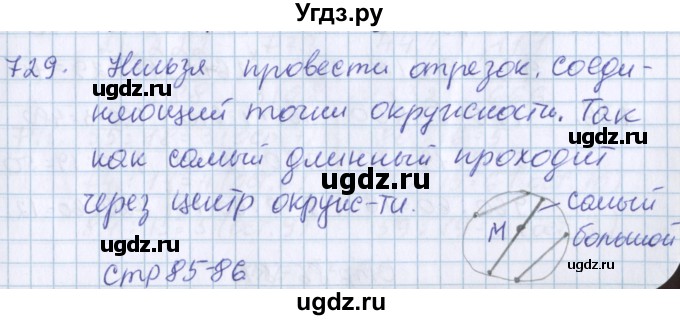 Угдз.ру
729. Нельзя провести отрезок, соеди-
няющий точки окружности. Так
как самый длинный проходит
через центр окруж-ти.
самый
М
большой
стр 85-86
ugdz.ru
ugdz.ru
ugdz.ru
ugdz.ru
ugdz.ru
ugdz.ru
ugdz.ru
ugdz.ru